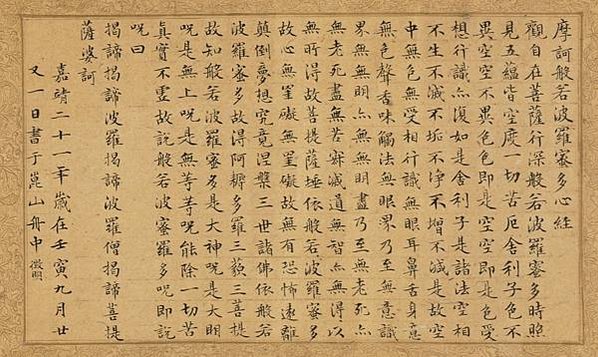 摩訶般若波羅蜜多心經
觀自在菩薩行深般若波羅蜜多時照
見五蘊皆空度一切苦厄舍利子色不
異空空不異色色即是空空即是色受
想行識亦復如是舍利子是諸法空相
不生不滅不垢不淨不增不減是故空
中無色無受想行識無眼耳鼻舌身意
無色聲香味觸法無眼界乃至無意識
界無無明亦無無明盡乃至無老死亦
無老死盡無苦寂滅道無智亦無得以
無所得故菩提薩埵依般若波羅蜜多
故心無罣礙無罣礙故無有恐怖遠離
顛倒夢想究竟涅槃三世諸佛依般若
波羅蜜多故得阿耨多羅三藐三菩提
故知般若波羅蜜多是大神呪是大明
呪是無上呪是無等等呪能除一切苦
真實不虛故說般若波羅蜜多呪即說
呪曰
揭諦揭諦波羅揭諦波羅僧揭諦菩提
薩婆訶
嘉靖二十一年歲在壬寅九月廿
又一日書于崑山舟中 徵明